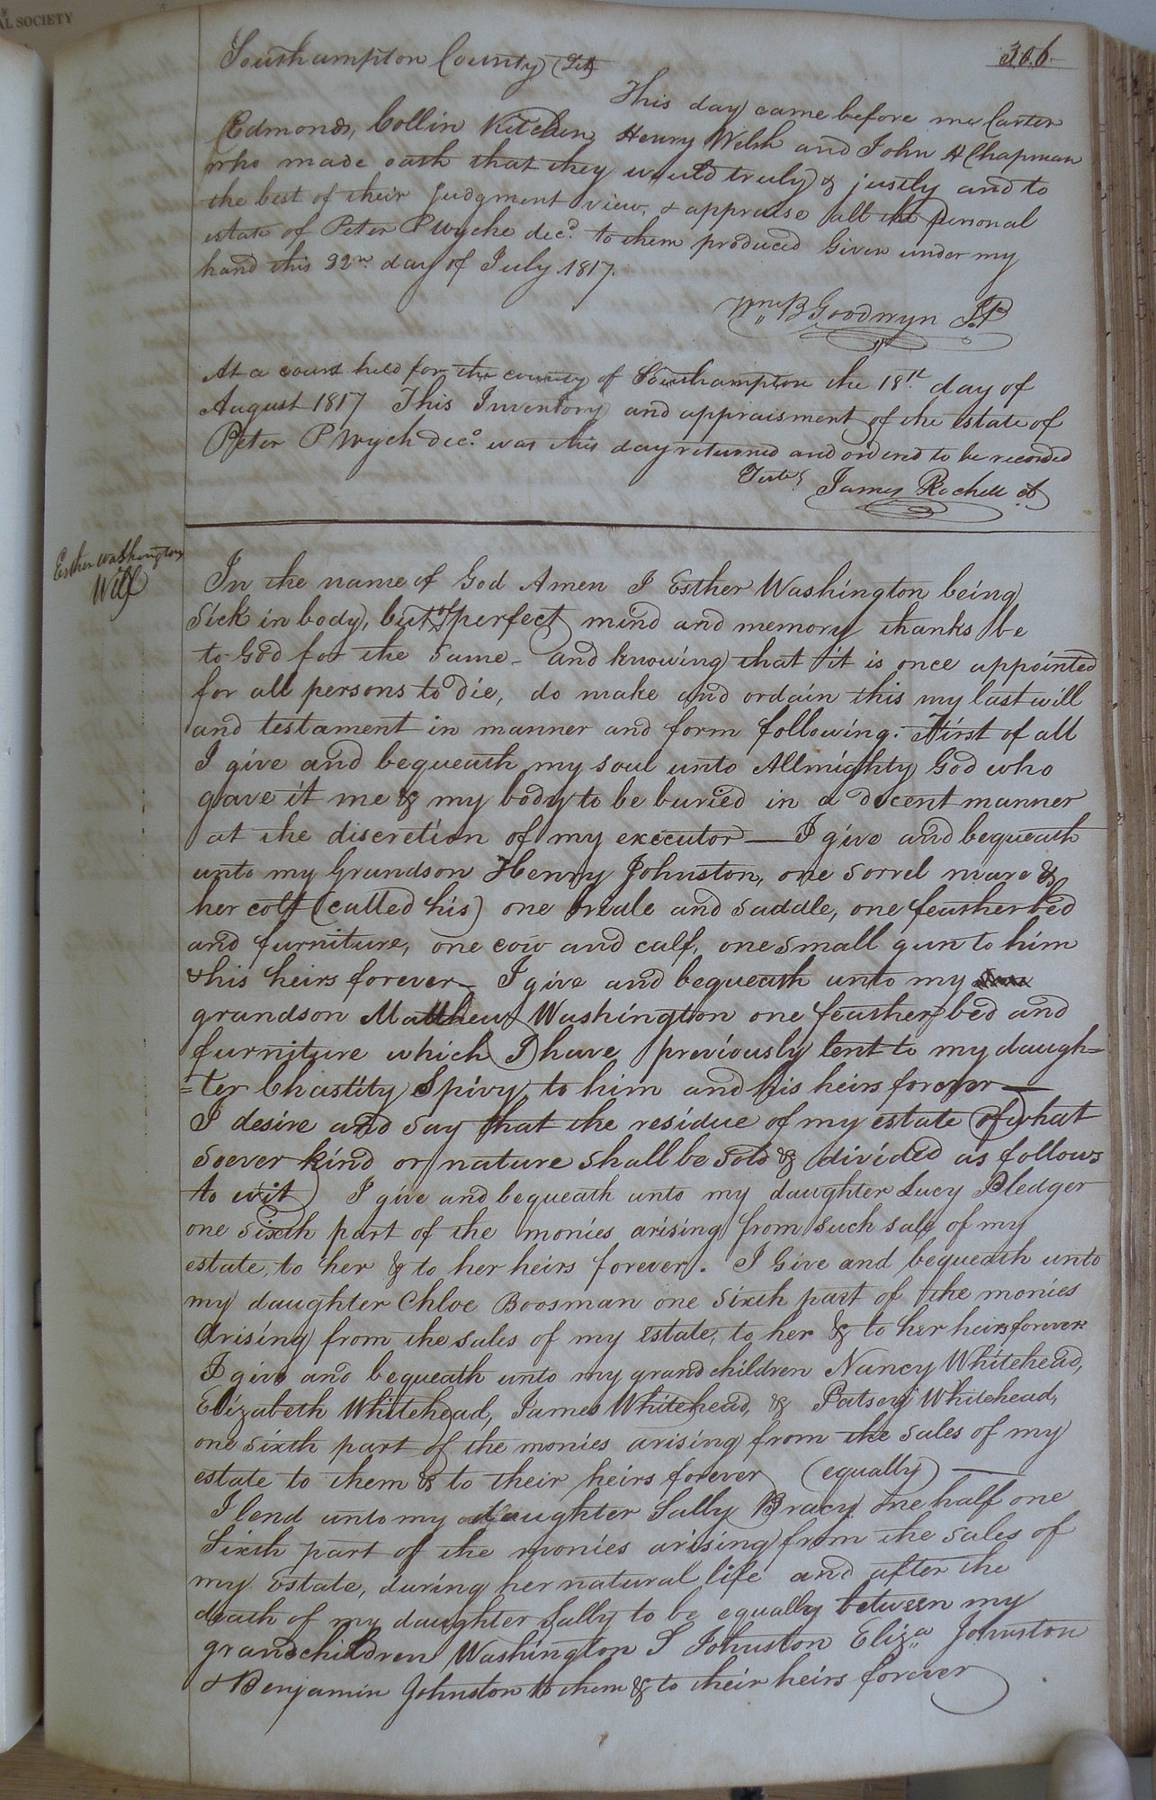 AL SOCIETY
306
Southampton County (Sct)
This day came before me Carter
Edmonds, Collin Kitchen, Henry Welsh and John A Chapman
who made oath that they would truly & justly and to
the best of their Judgment view, & appraise all the personal
estate of Peter P Wyche decd. to them produced Given under my
hand this 22nd day of July 1817.
Wm B Goodwyn JP
At a court held for the county of Southampton the 18th day of
August 1817 This Inventory and appraisment of the estate of
Peter P Wych decd. was this day returned and ordered to be recorded
Teste James Rochell Ck
Esther Washingtons
Will
In the name of God Amen I Esther Washington being
Sick in body, but of perfect mind and memory thanks be
to God for the Same - and knowing that it is once appointed
for all persons to die, do make and ordain this my last will
and testament in manner and form following. First of all
I give and bequeath my soul unto Allmighty God who
gave it me & my body to be buried in a decent manner
at the discretion of my executor — I give and bequeath
unto my Grandson Henry Johnston, one Sorrel mare &
her colt (called his) one bridle and Saddle, one feather bed
and furniture, one cow and calf, one small gun to him
& his heirs forever — I give and bequeath unto my
grandson Matthew Washington one feather bed and
furniture which I have previously lent to my daugh=
=ter Chastity Spivy, to him and his heirs forever —
I desire and say that the residue of my estate of what
soever kind or nature shall be sold & divided as follows
to wit) I give and bequeath unto my daughter Lucy Pledger
one sixth part of the monies arising from such sale of my
estate, to her & to her heirs forever. I Give and bequeath unto
my daughter Chloe Boosman one sixth part of the monies
Arising from the sales of my estate, to her & to her heirs forever
I give and bequeath unto my grandchildren Nancy Whitehead,
Elizabeth Whitehead, James Whitehead, & Patsey Whitehead,
one sixth part of the monies arising from the sales of my
estate to them & to their heirs forever (equally) —
I lend unto my daughter Sally Bracy one half one
Sixth part of the monies arising from the sales of
my Estate, during her natural life and after the
death of my daughter Sally to be equally between my
grandchildren Washington S Johnston Eliza Johnston
& Benjamin Johnston to them & to their heirs forever